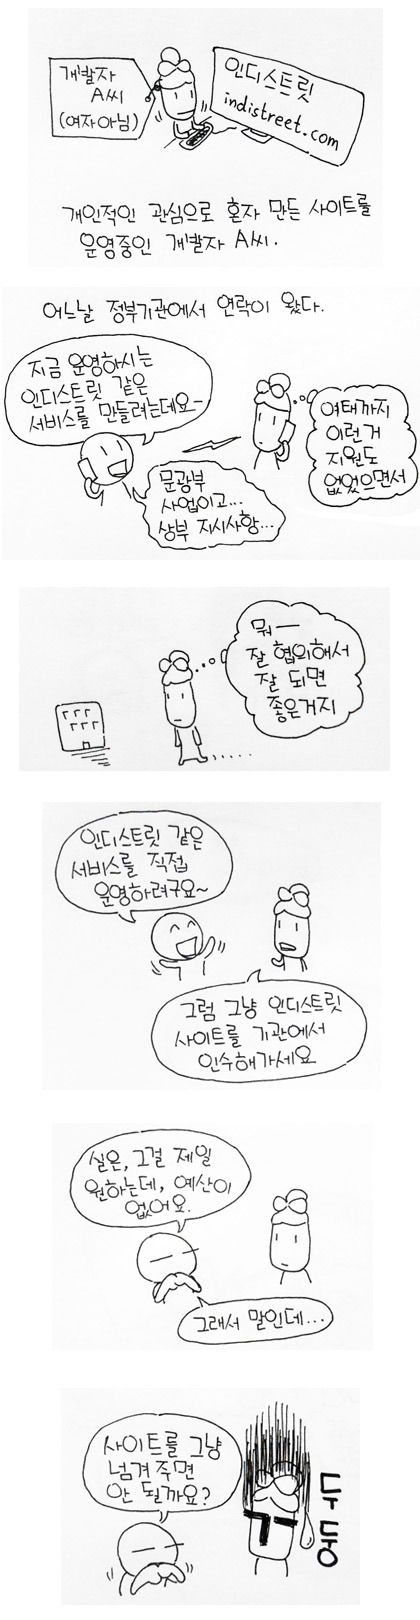 개발자
A씨
(여자아님)
인디스트릿
indistreet.com
개인적인 관심으로 혼자 만든 사이트를
운영중인 개발자 A씨.
어느날 정부기관에서 연락이 왔다.
지금 운영하시는
인디스트릿 같은
서비스를 만들려는데요~
여태까지
이런거
지원도
없었으면서
문광부
사업이고...
상부 지시사항...
뭐—
잘 협의해서
잘 되면
좋은거지
인디스트릿 같은
서비스를 직접
운영하려구요~
그럼 그냥 인디스트릿
사이트를 기관에서
인수해가세요
실은, 그걸 제일
원하는데, 예산이
없어요.
그래서 말인데...
사이트를 그냥
넘겨 주면
안 될까요?
두
둥